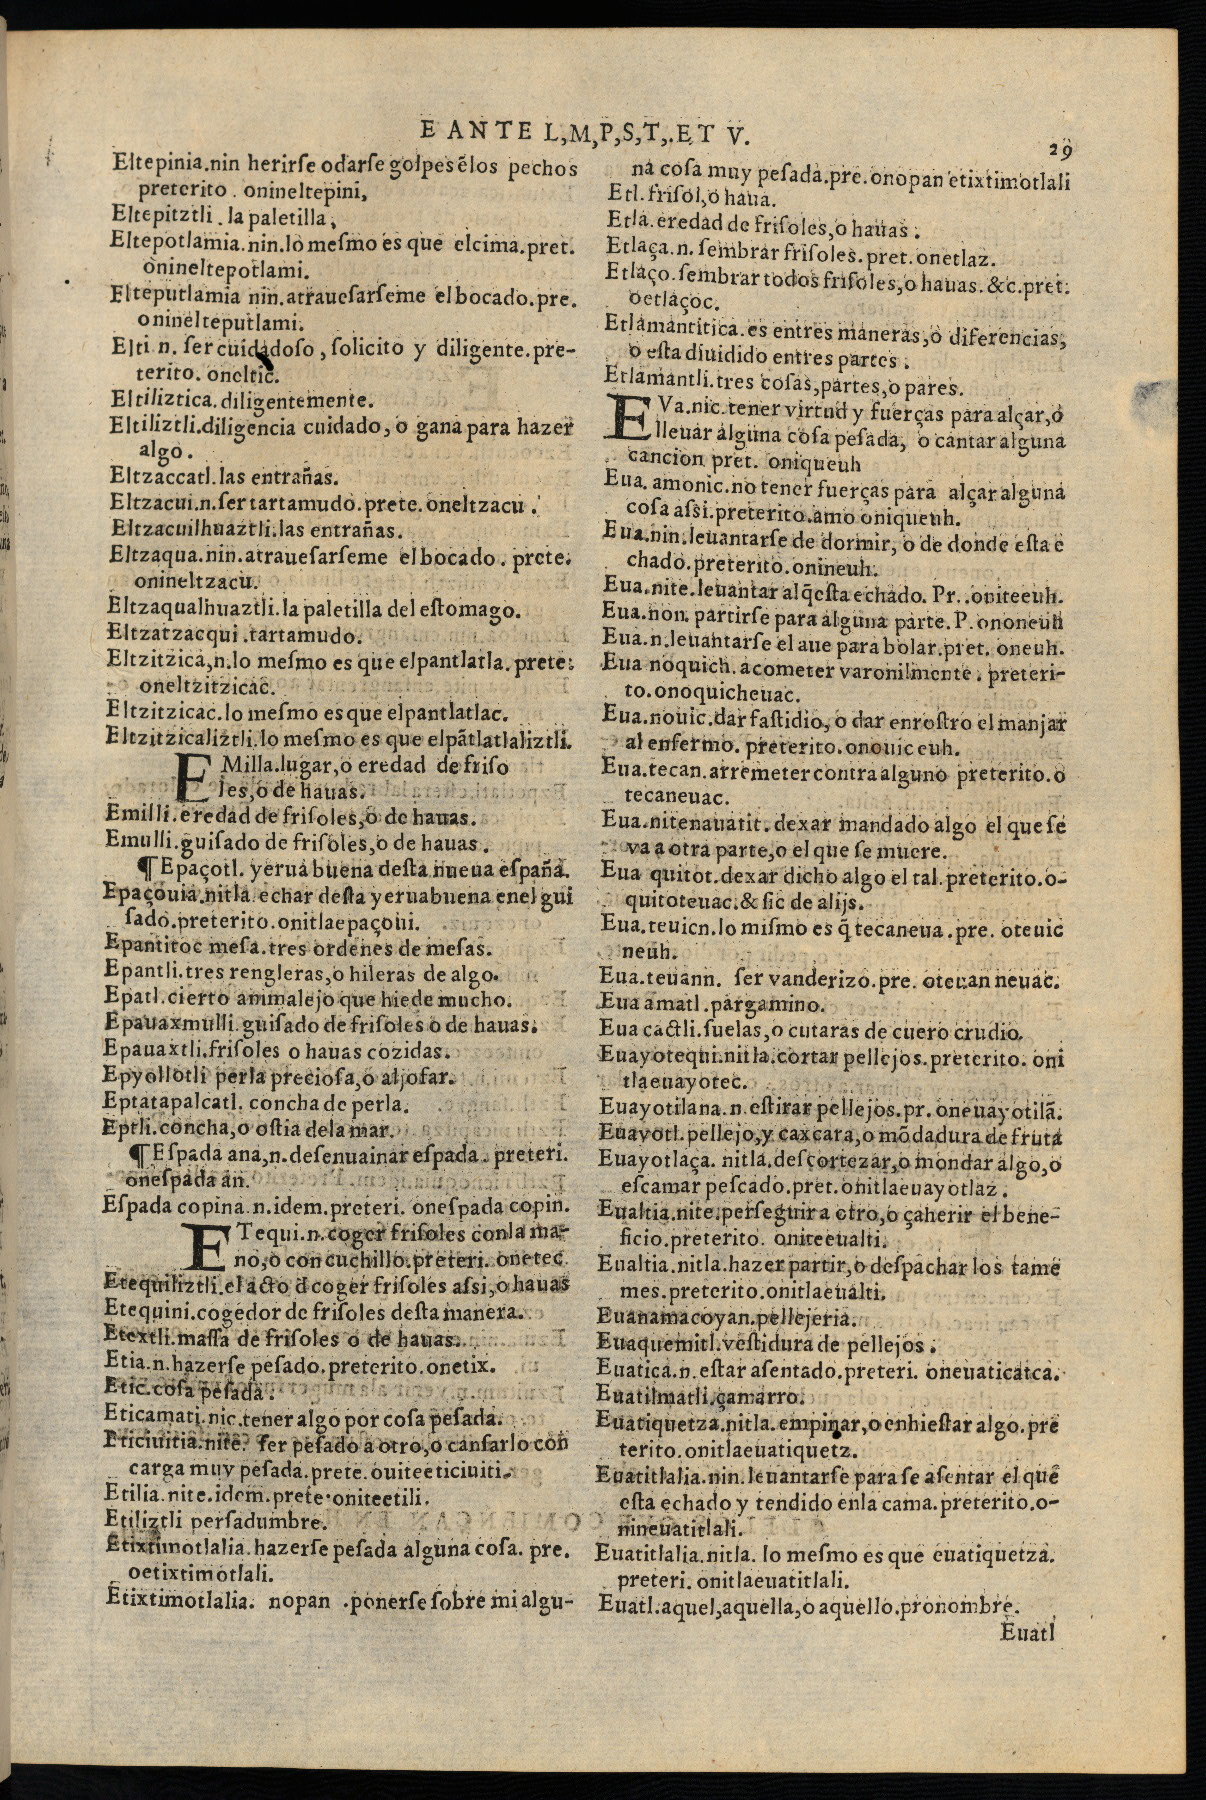 E ANTE L,M,P,S,T,.ET V.
29
Eltepinia.nin herirse odarse golpes ẽlos pechos
preterito . onineltepini,
Eltepitztli . la paletilla,
Eltepotlamia.nin.lo mesmo es que elcima.pret.
onineltepotlami.
Elteputlamia nin.atrauesarseme el bocado.pre.
oninelteputlami.
Elti n. ser cuidadoso, solicito y diligente.pre-
terito. oneltic.
Eltiliztica.diligentemente.
Eltiliztli.diligencia cuidado, o gana para hazer
algo.
Eltzaccatl.las entrañas.
Eltzacui.n.ser tartamudo.prete.oneltzacu.
Eltzacuilhuaztli.las entrañas.
Eltzaqua.nin.atrauesarseme el bocado. prete.
onineltzacu.
Eltzaqualhuaztli.la paletilla del estomago.
Eltzatzacqui .tartamudo.
Eltzitzica,n.lo mesmo es que elpantlatla.prete.
oneltzitzicac.
Eltzitzicac.lo mesmo es que elpantlatlac.
Eltzitzicaliztli.lo mesmo es que elpãtlatlaliztli.
EMilla.lugar,o eredad de friso
les,o de hauas.
Emilli.eredad de frisoles,o de hauas.
Emulli.guisado de frisoles,o de hauas.
¶Epaçotl. yerua buena desta nueua españa.
Epaçouia.nitla.echar desta yeruabuena enel gui
sado.preterito.onitlaepaçoui.
Epantitoc mesa.tres ordenes de mesas.
Epantli.tres rengleras,o hileras de algo.
Epatl.cierto animalejo que hiede mucho.
Epauaxmulli.guisado de frisoles o de hauas.
Epauaxtli.frisoles o hauas cozidas.
Epyollotli perla preciosa,o aljofar.
Eptatapalcatl. concha de perla.
Eptli.concha,o ostia dela mar.
¶Espada ana,n.desenuainar espada. preteri.
onespada an.
Espada copina.n.idem.preteri. onespada copin.
ETequi.n.coger frisoles conla ma-
no,o con cuchillo.preteri. onetec
Etequiliztli.el acto d coger frisoles assi,o hauas
Etequini.cogedor de frisoles desta manera.
Etextli.massa de frisoles o de hauas.
Etia.n.hazerse pesado.preterito.onetix.
Etic.cosa pesada.
Eticamati.nic.tener algo por cosa pesada.
Eticiuitia.nite. ser pesado a otro,o cansarlo con
carga muy pesada.prete.ouiteeticiuiti.
Etilia.nite.idem.prete.oniteetili.
Etiliztli persadumbre.
Etixtimotlalia.hazerse pesada alguna cosa. pre.
oetixtimotlali.
Etixtimotlalia. nopan .ponerse sobre mi algu-
na cosa muy pesada.pre.onopan etixtimotlali
Etl.frisol,o haua.
Etla.eredad de frisoles,o hauas.
Etlaça.n. sembrar frisoles.pret.onetlaz.
Etlaço.sembrar todos frisoles,o hauas.&c.pret.
oetlaçoc.
Etlamantitica.es entres maneras,o diferencias,
o esta diuidido entres partes.
Etlamantli.tres cosas,partes,o pares.
EVa.nic.tener virtud y fuerças para alçar,o
lleuar alguna cosa pesada, o cantar alguna
cancion pret. oniqueuh
Eua. amonic.no tener fuerças para alçar alguna
cosa assi.preterito.amo oniqueuh.
Eua.nin.leuantarse de dormir, o de donde esta e
chado.preterito.onineuh.
Eua.nite.leuantar alq̃esta echado. Pr..oniteeuh.
Eua.non. partirse para alguna parte. P.ononeuh
Eua.n.leuantarse el aue para bolar.pret. oneuh.
Eua noquich.acometer varonilmente. preteri-
to.onoquicheuac.
Eua.nouic.dar fastidio, o dar enrostro el manjar
al enfermo. preterito.onouic euh.
Eua.tecan.arremeter contra alguno preterito.o
tecaneuac.
Eua.nitenauatit.dexar mandado algo el que se
va a otra parte,o el que se muere.
Eua quitot.dexar dicho algo el tal.preterito.o-
quitoteuac.& sic de alijs.
Eua.teuicn.lo mismo es q̃ tecaneua.pre. oteuic
neuh.
Eua.teuann. ser vanderizo.pre. oteuan neuac.
Eua amatl.pargamino.
Eua cactli.suelas,o cutaras de cuero crudio.
Euayotequi.nitla.cortar pellejos.preterito.oni
tlaeuayotec.
Euayotilana.n.estirar pellejos.pr. oneuayotilã.
Euayotl.pellejo,y caxcara,o mõdadura de fruta
Euayotlaça. nitla.descortezar,o mondar algo,o
escamar pescado.pret.onitlaeuayotlaz.
Eualtia.nite.perseguir a otro,o çaherir el bene-
ficio.preterito. oniteeualti.
Eualtia.nitla.hazer partir,o despachar los tame
mes.preterito.onitlaeualti.
Euanamacoyan.pellejeria.
Euaquemitl.vestidura de pellejos.
Euatica.n.estar asentado.preteri. oneuaticatca.
Euatilmatli.çamarro.
Euatiquetza.nitla. empinar,o enhiestar algo.pre
terito.onitlaeuatiquetz.
Euatitlalia.nin.leuantarse para se asentar el que
esta echado y tendido enla cama.preterito.o-
nineuatitlali.
Euatitlalia.nitla. lo mesmo es que euatiquetza.
preteri.onitlaeuatitlali.
Euatl.aquel,aquella,o aquello.pronombre.
Euatl